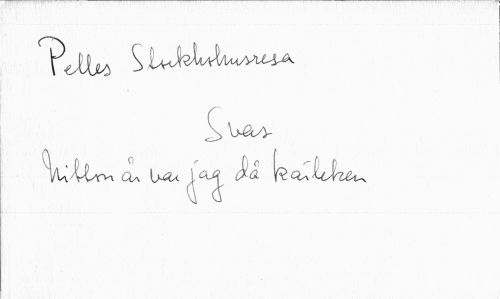 Pelles Stockholmsresa
Svar
Nitton år var jag då kärleken